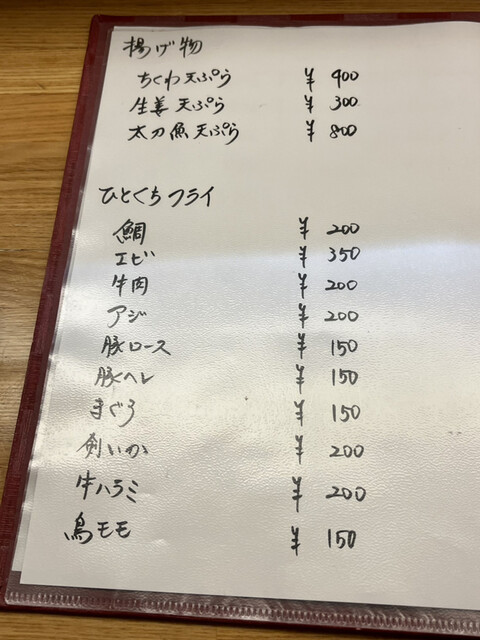 揚げ物
ちくわ天ぷら ¥ 400
生姜天ぷら ¥ 300
太刀魚天ぷら ¥ 800
ひとくちフライ
鯛 ¥ 200
エビ ¥ 350
牛肉 ¥ 200
アジ ¥ 200
豚ロース ¥ 150
豚ヘレ ¥ 150
まぐろ ¥ 150
剣いか ¥ 200
牛ハラミ ¥ 200
鳥モモ ¥ 150